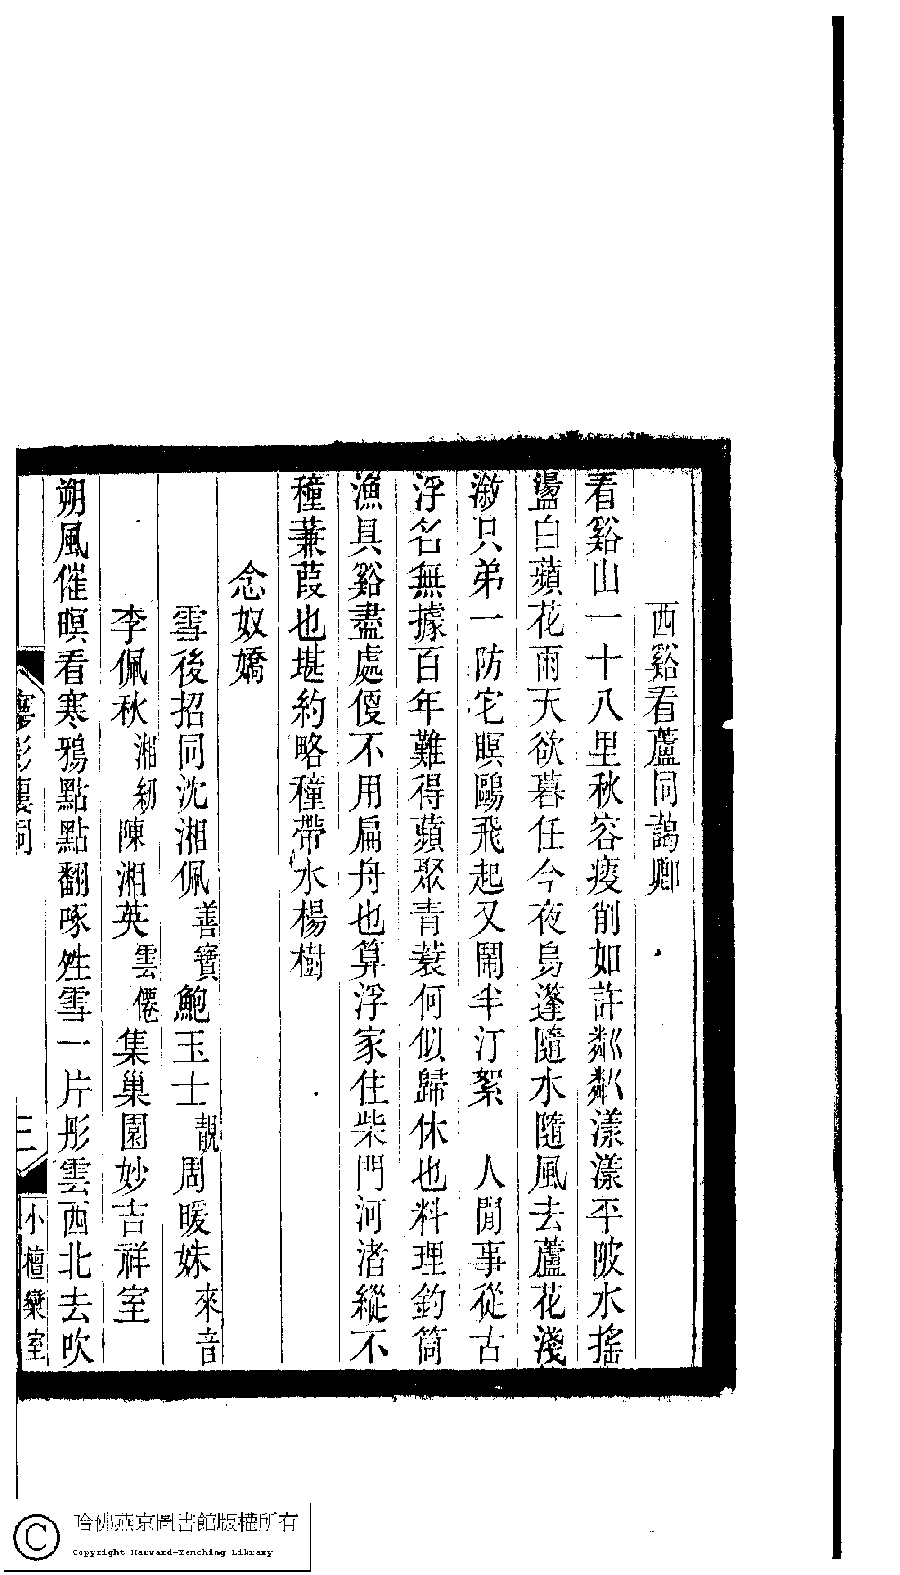 西谿看蘆同藹卿
看谿山一十八里秋容瘦削如許粼粼漾漾平陂水搖
盪白蘋花雨天欲暮任今夜烏篷隨水隨風去蘆花淺
漵只弟一防它瞑鷗飛起又鬧半汀絮　人閒事從古
浮名無據百年難得蘋聚青蓑何似歸休也料理釣筒
漁具谿盡處便不用扁舟也算浮家住柴門河渚縱不
種蒹葭也堪約略種帶水楊樹
念奴嬌
雪後招同沈湘佩善寶鮑玉士靚周暖姝來音
李佩秋湘紉陳湘英雲僊集巢園妙吉祥室
朔風催暝看寒鴉點點翻啄殘雪一片彤雲西北去吹
影樓詞
三
小檀欒室
哈佛燕京圖書館版權所有
Copyright Harvard-Yenching Library